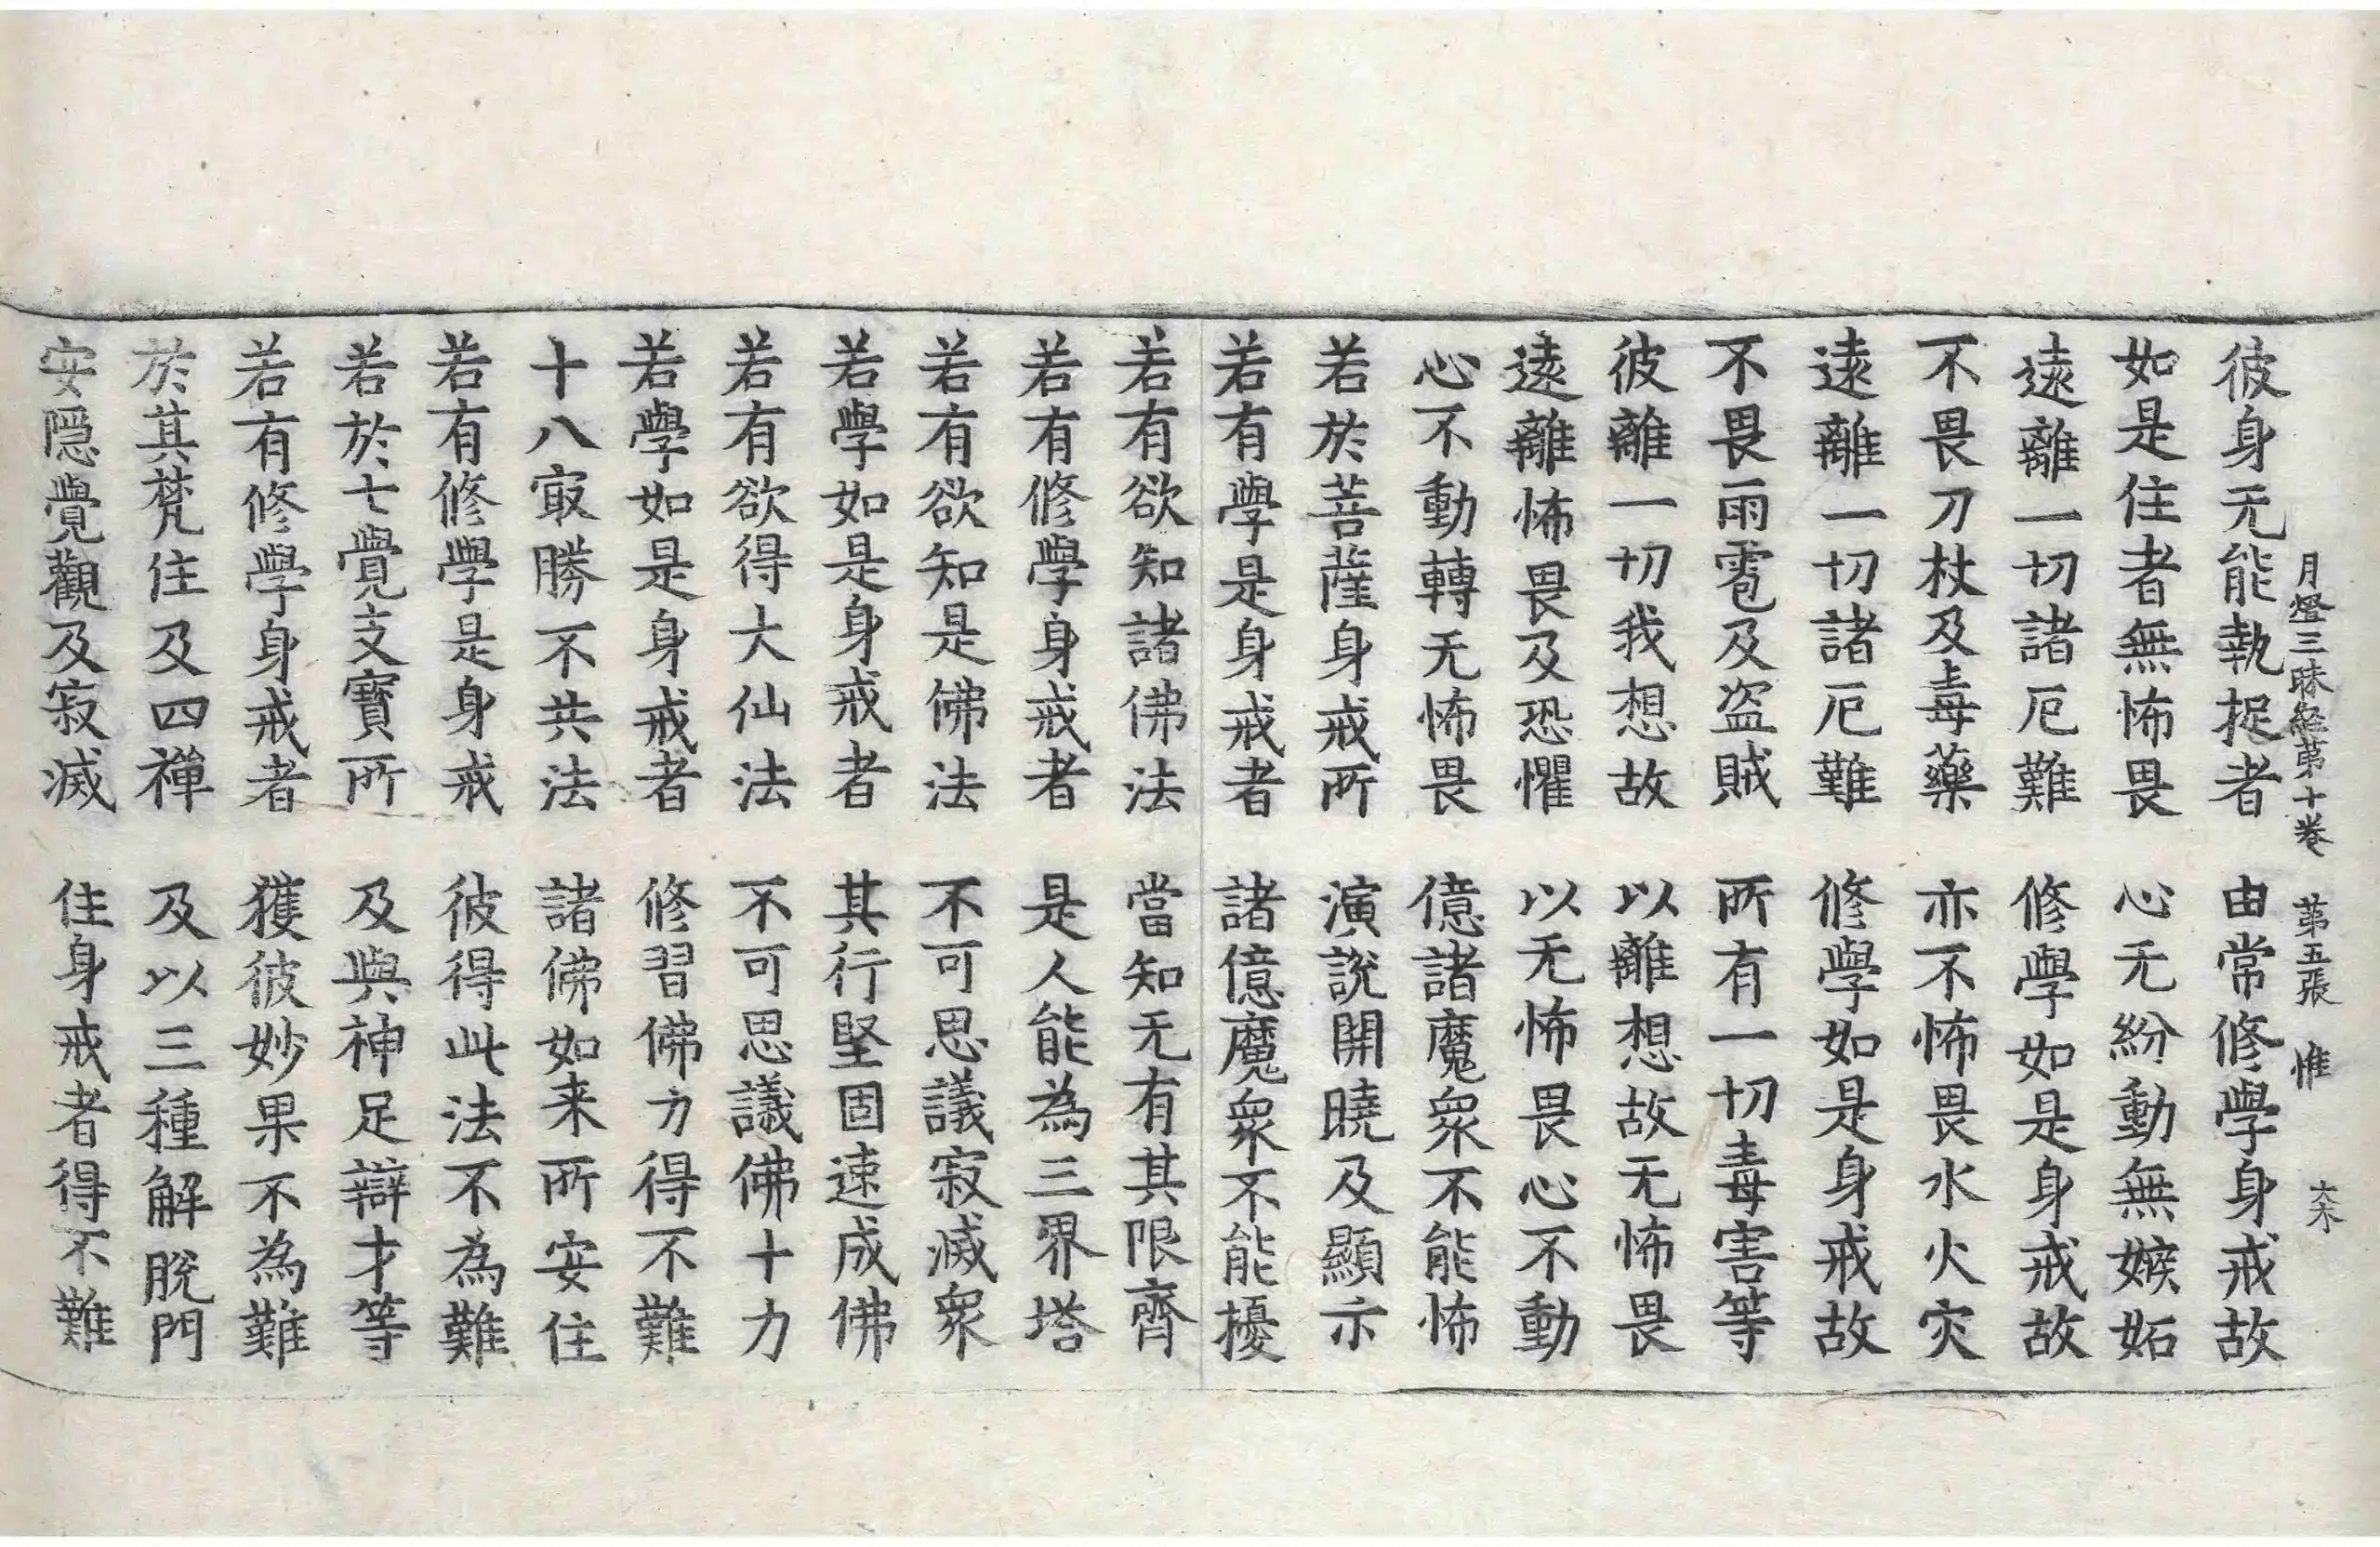 月燈三昧経苐十卷 苐五張 惟
彼身无能執捉者 由常修學身戒故
如是住者無怖畏 心无紛動無嫉妬
遠離一切諸厄難 修學如是身戒故
不畏刀杖及毒藥 亦不怖畏水火灾
遠離一切諸厄難 修學如是身戒故
不畏雨雹及盗賊 所有一切毒害等
彼離一切我想故 以離想故无怖畏
遠離怖畏及恐懼 以无怖畏心不動
心不動轉无怖畏 億諸魔衆不能怖
若於菩薩身戒所 演説開曉及顯示
若有學是身戒者 諸億魔衆不能擾
若有欲知諸佛法 當知无有其限齊
若有修學身戒者 是人能為三界塔
若有欲知是佛法 不可思議寂滅衆
若學如是身戒者 其行堅固速成佛
若有欲得大仙法 不可思議佛十力
若學如是身戒者 修習佛力得不難
十八㝡勝不共法 諸佛如来所安住
若有修學是身戒 彼得此法不為難
若於七覺支寶所 及與神足辯才等
若有修學身戒者 獲彼妙果不為難
於其梵住及四禪 及以三種解脫門
安隠覺觀及寂滅 住身戒者得不難